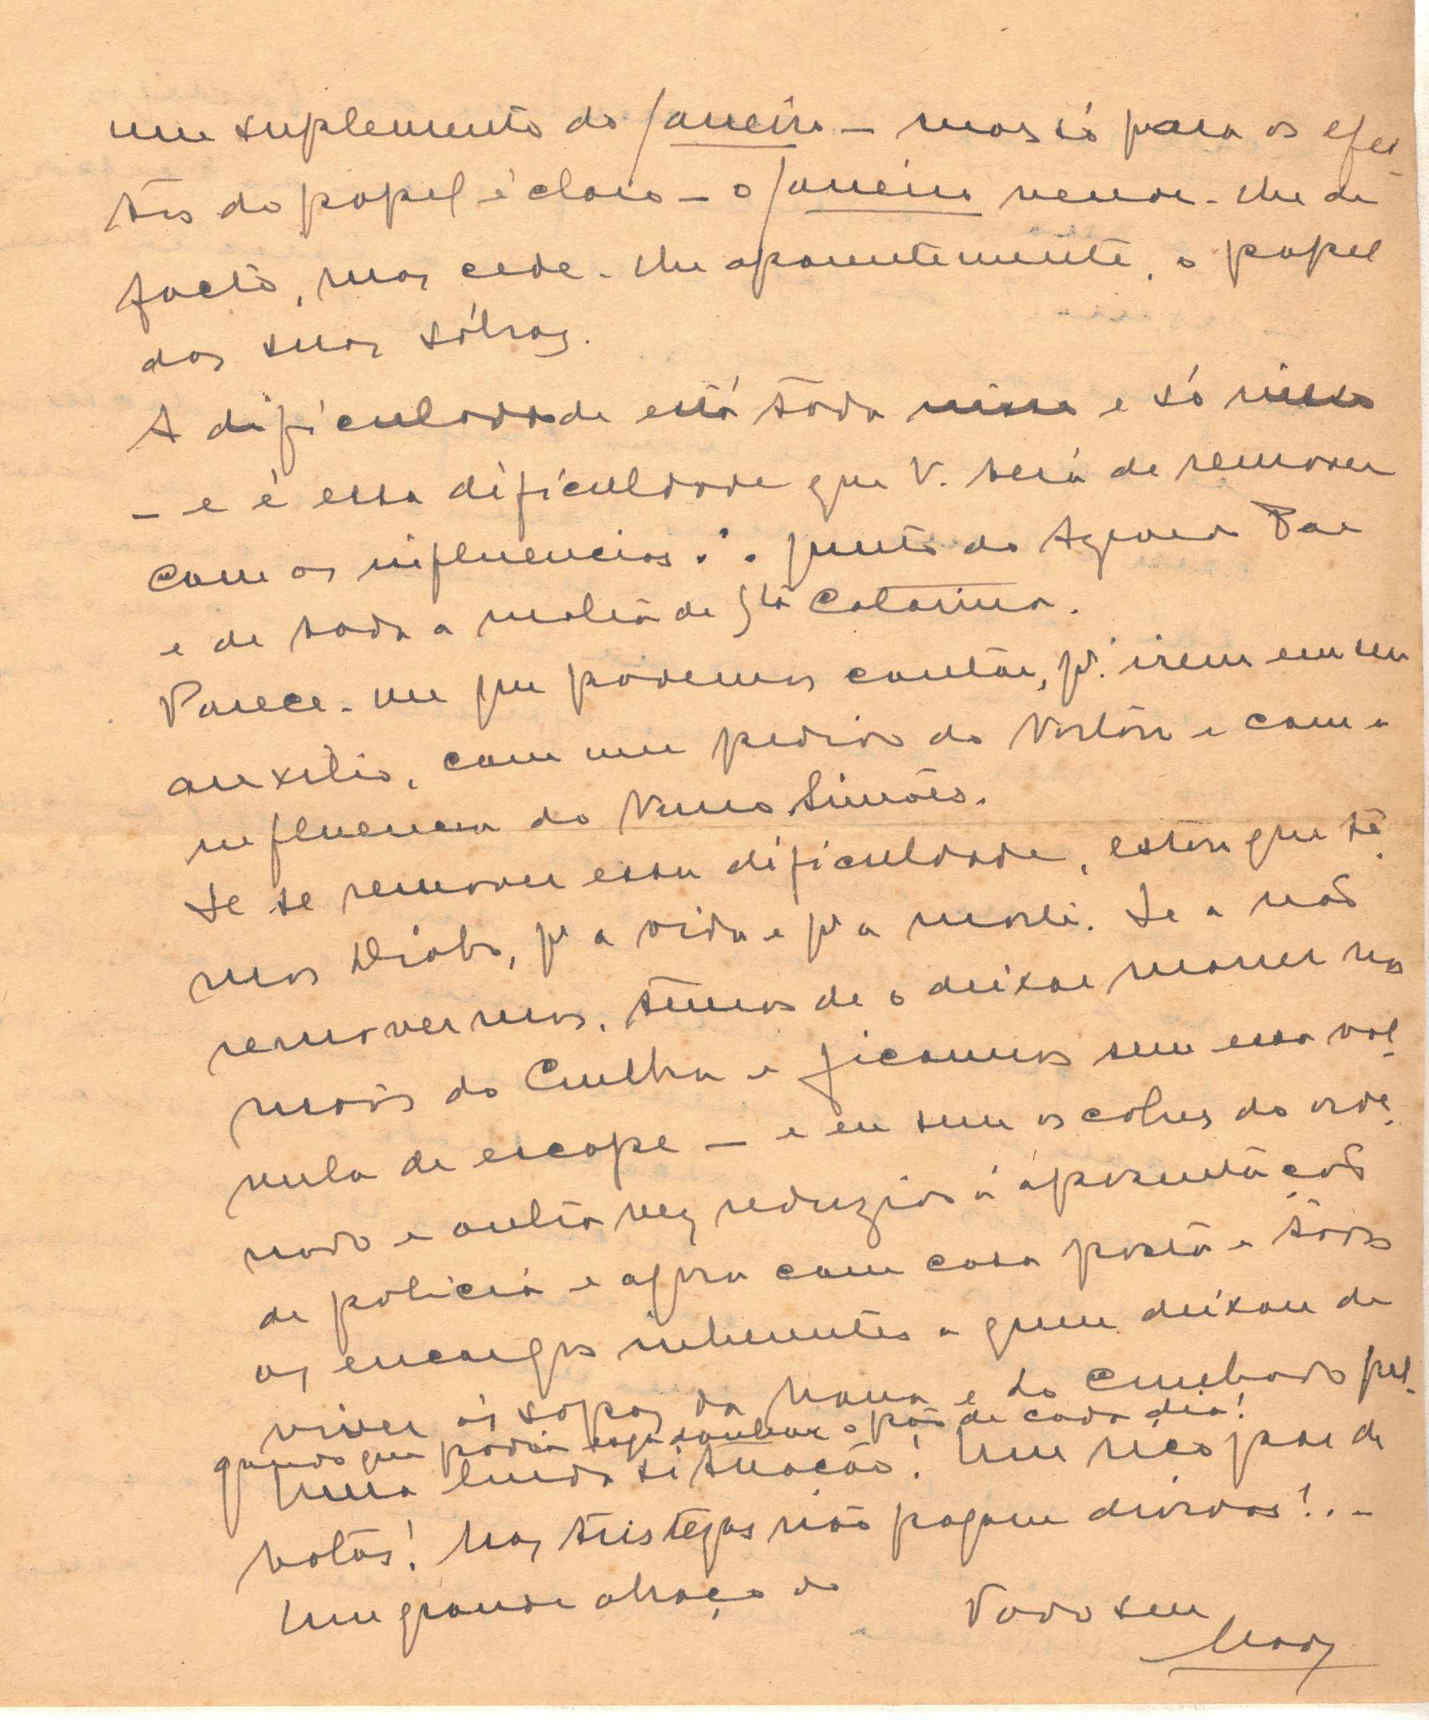 um suplemento do Janeiro — mas só para os efei-
tos do papel é claro — o Janeiro vende-lhe de
facto, mas cede-lhe aparentemente, o papel
das suas sóbras.
A dificuldade está tôda nisso e só nisso
— e é essa dificuldade que V. terá de remover
com as influencias ∴ junto do
e de toda a malta de Sta Catarina.
Parece-me que podemos contar, pª irem em seu
auxilio, com um pedido do e com a
influencia do Nuno Simões.
Se se remover essa dificuldade, estou que tê-
mos Diabo, pª a vida e pª a morte. Se a não
removermos, têmos de o deixar morrer nas
mãos do Cunha e ficamos sem essa val-
vula de escape — e eu sem os cobres do orde-
nado e outra vez reduzido á aposentação
de policia e agora com casa posta e tôdos
os encargos inherentes a quem deixou de
viver ás sopas da e do cunhado
quando que podia ganhar o pão de cada dia!
Uma linda situação! Um rico par de
botas! Mas tristezas não pagam dividas!..–
Um grande abraço do
Todo seu